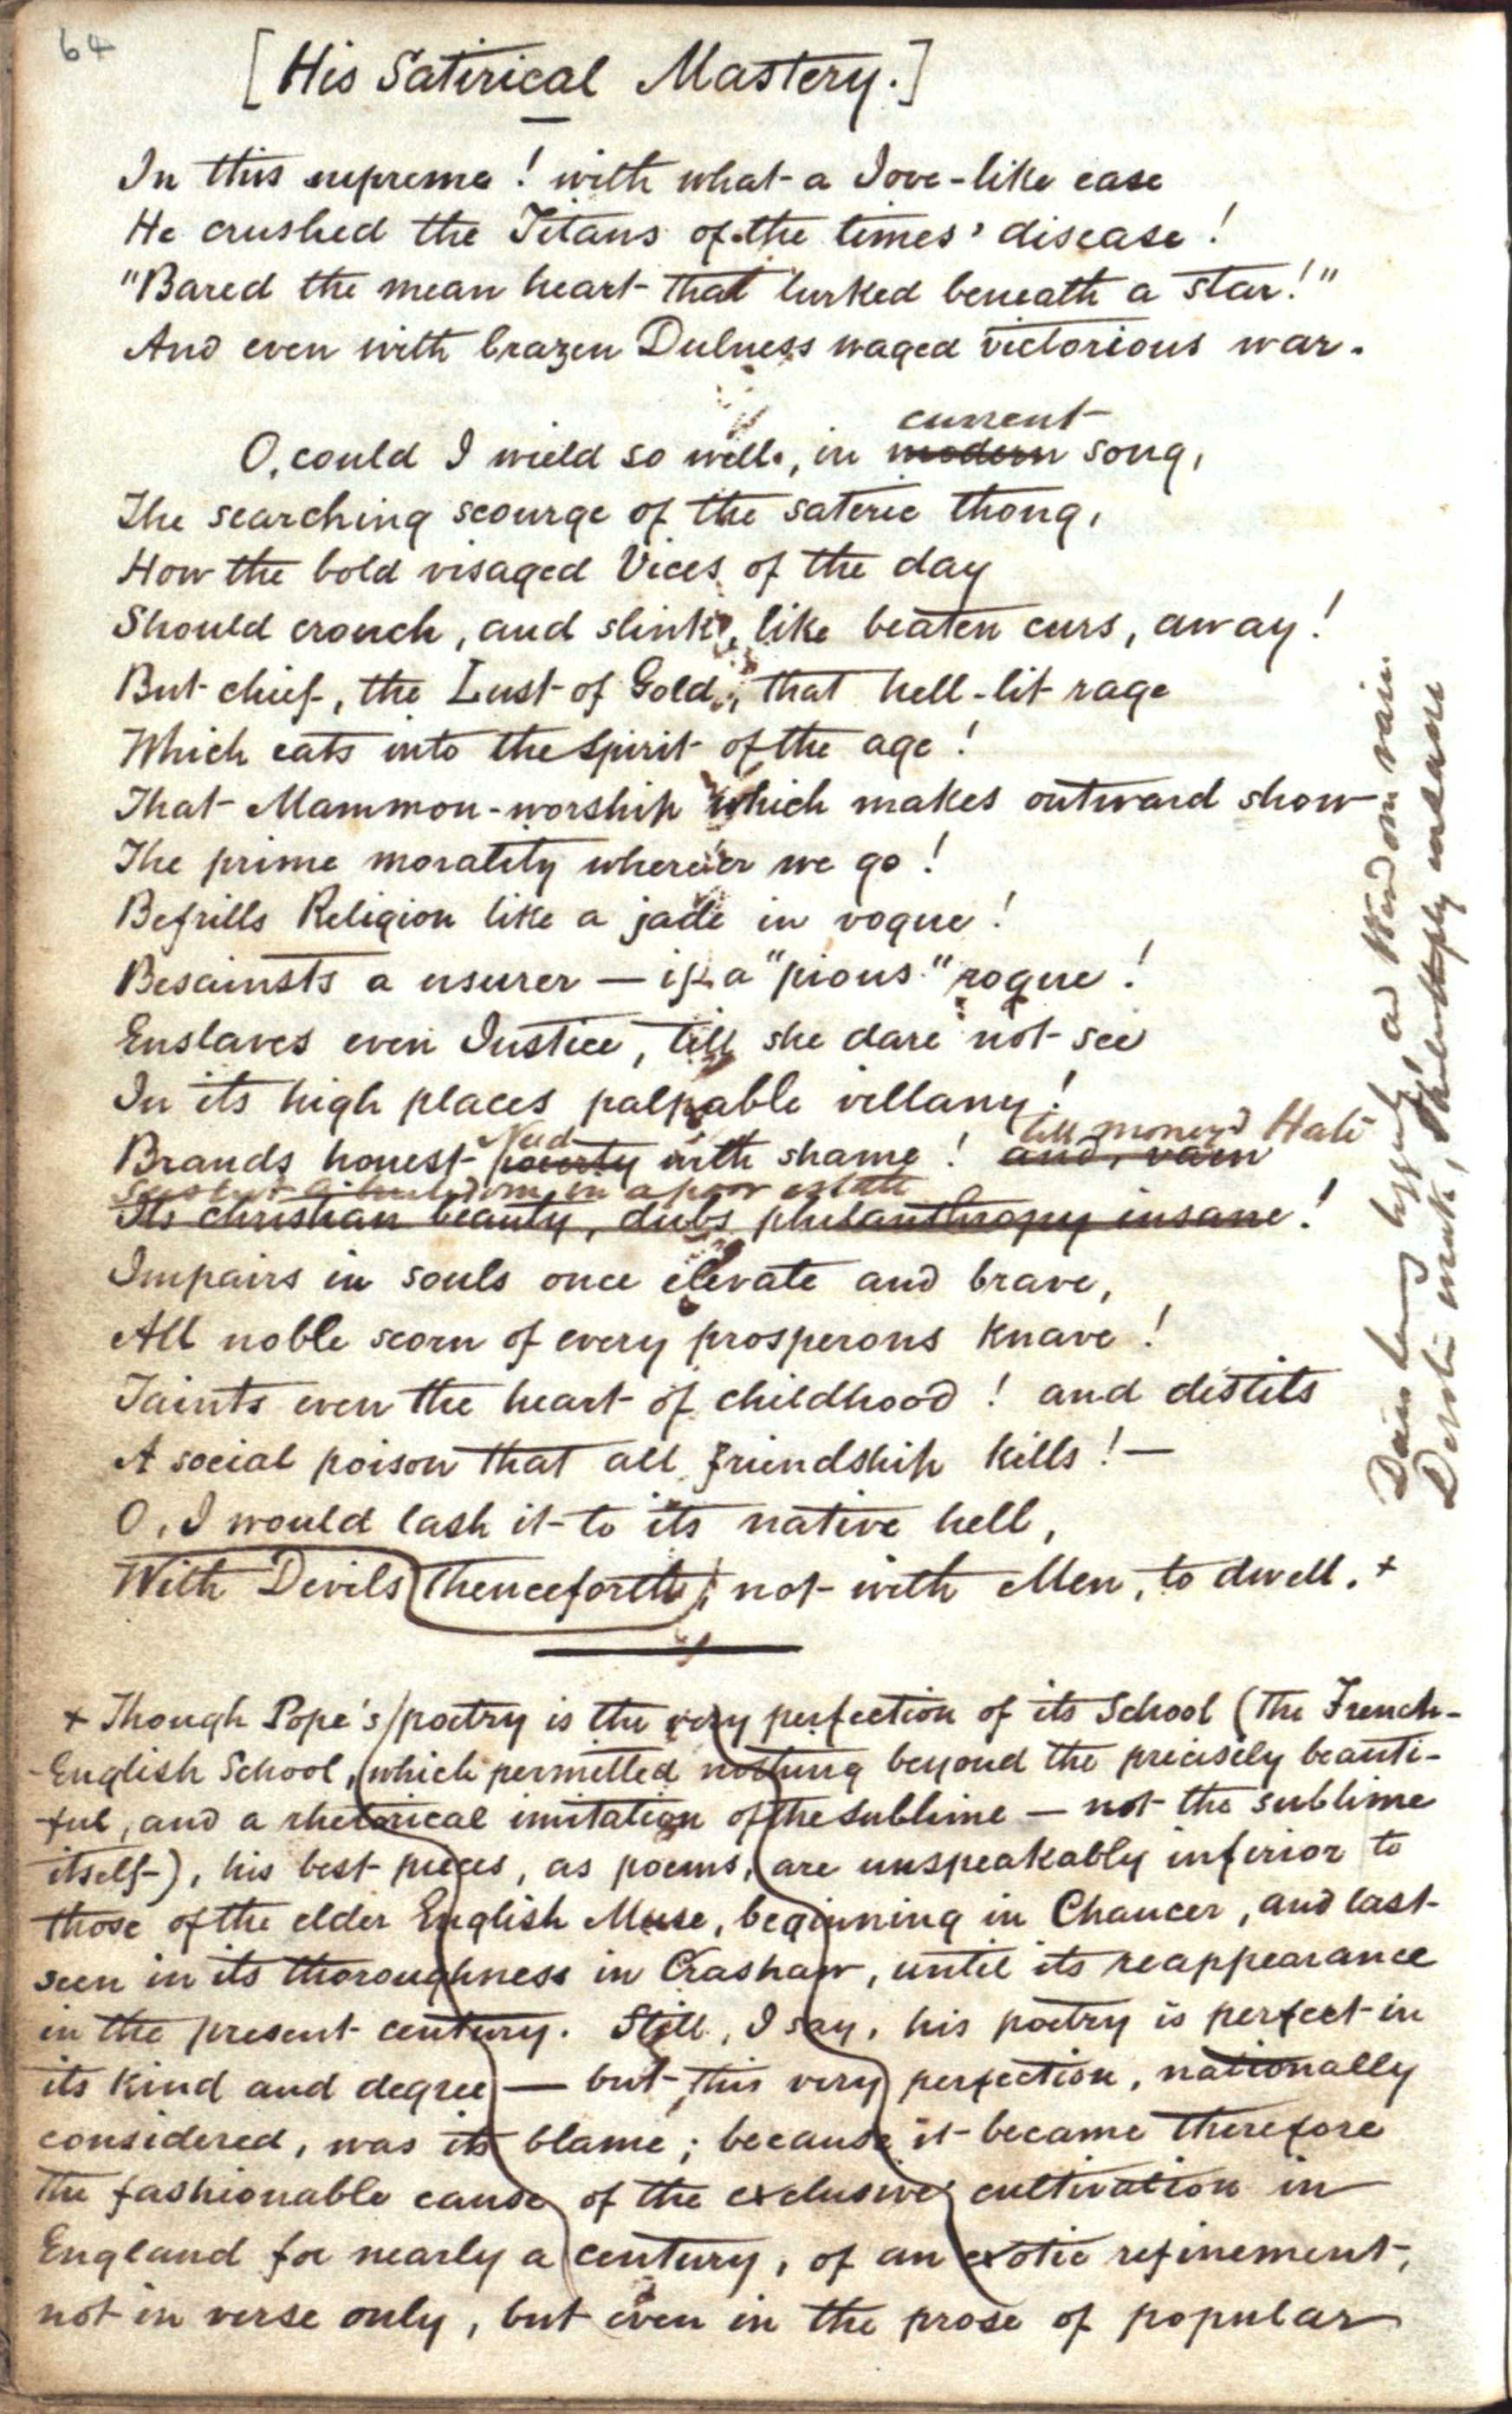 64
[His Satirical Mastery.]
In this supreme! with what a Jove-like ease
He crushed the Titans of the times' disease!
"Bared the mean heart that lurked beneath a star!"
And even with brazen Dulness waged victorious war.
current
O, could I wield so well, in modern song,
The searching scourge of the sateric thong,
How the bold visaged Vices of the day
Should crouch, and slink, like beaten curs, away!
But chief, the Lust of Gold, that hell-lit rage
Which eats into the spirit of the age!
That Mammon-worship which makes outward show
The prime morality where'er we go!
Befrills Religion like a jade in vogue!
Besainsts a usurer — if a "pious" rogue!
Enslaves even Justice, till she dare not see
In its high places palpable villany!
Need till money'd Hate
Brands honest poverty with shame! and, vain
Sees but a in a poor estate
Its christian beauty, dubs philanthropy insane!
Impairs in souls once elevate and brave,
All noble scorn of every prosperous knave!
Taints even the heart of childhood! and distils
A social poison that all friendship kills! —
O, I would lash it to its native hell,
With Devils thenceforth, not with Men, to dwell. +
+ Though Pope's poetry is the very perfection of its School (the French-
-English School, which permitted nothing beyond the precisely beauti-
-ful, and a rhetorical imitation of the sublime — not the sublime
itself), his best pieces, as poems, are unspeakably inferior to
those of the elder English Muse, beginning in Chaucer, and last
seen in its thoroughness in Crashaw, until its reappearance
in the present century. Still, I say, his poetry is perfect in
its kind and degree — but this very perfection, nationally
considered, was its blame; because it became therefore
the fashionable cause of the exclusive cultivation in
England for nearly a century, of an exotic refinement,
not in verse only, but even in the prose of popular
as Wisdom vain
insane